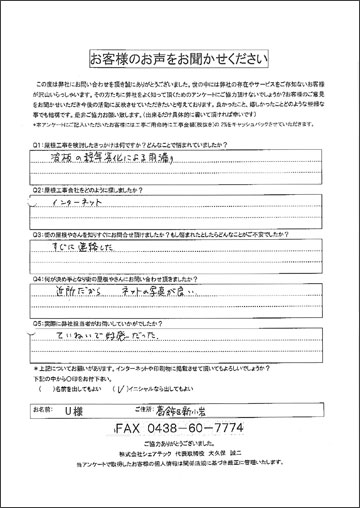 お客様のお声をお聞かせください
この度は弊社にお問い合わせを頂き誠にありがとうございます。世の中には弊社の存在やサービスをご存知ないお客様
が沢山いらっしゃいます。その方たちに弊社をよく知って頂くためのアンケートにご協力頂けないでしょうか?お客様のご意見
をお聞かせいただき今後の活動に反映させていただきたいと考えております。良かったこと、嬉しかったことどのような些細な
事でも結構です。是非ご協力お願い致します。(出来るだけ具体的に書いて頂ければ幸いです)
*本アンケートにご記入いただいたお客様には工事ご用命時に工事金額(税抜き)の2%をキャッシュバックさせていただきます。
Q1:屋根工事を検討したきっかけは何ですか?どんなことで悩まれていましたか?
波板の経年劣化による雨漏り
Q2:屋根工事会社をどのように探しましたか?
インターネット
Q3:街の屋根やさんを知りすぐにお問合せ頂けましたか?もし悩まれたとしたらどんなことがご不安でしたか?
すぐに連絡した
Q4:何が決め手となり街の屋根やさんにお問い合わせ頂きましたか?
近所だから ネットの写真が良い
Q5:実際に弊社担当者がお伺いしていかがでしたか?
ていねいで好感だった。
*上記についてお願いがあります。インターネットや印刷物に掲載させて頂いてもよろしいでしょうか?
下記の中から〇印をお付下さい。
( )名前を出してもよい (✓)イニシャルなら出してもよい
お名前: U様 ご住所: 葛飾区新小岩
FAX 0438-60-7774
ご協力ありがとうございました。
株式会社シェアテック 代表取締役 大久保 誠二
当アンケートで取得したお客様の個人情報は関係法規に基づき厳正に管理いたします。